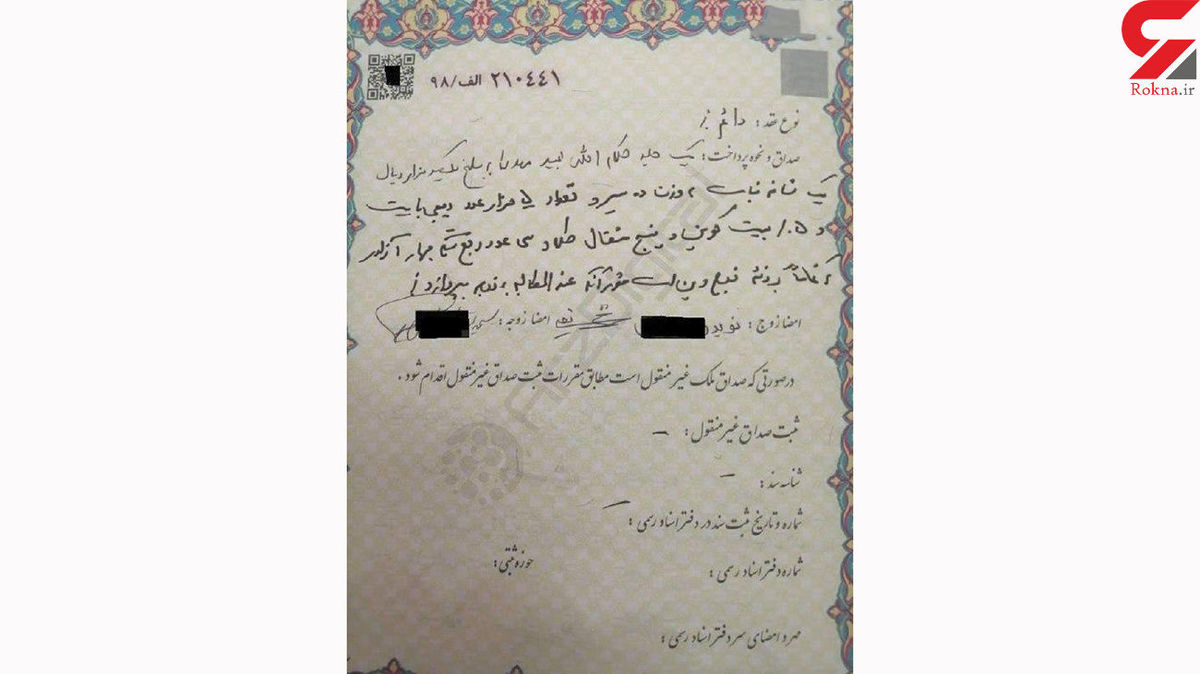 Rokna.ir
۲۱۰۴۴۱ الف/۹۸
نوع عقد: دائم
صداق و نحوه پرداخت: یک جلد کلام الله مجید مهدی به مبلغ یکصد هزار ریال
یک شاخه نبات به وزن ده سیر و تعداد هزار عدد بیت
و ۰.۵ بیت کوین و پنج مثقال طلا و سی عدد ربع سکه بهار آزادی
که تماماً بر ذمه زوج دین است عندالمطالبه به زوجه بپردازد
امضا زوج: نوید امضا زوجه:
درصورتی که صداق ملک غیر منقول است مطابق مقررات ثبت صداق غیر منقول اقدام شود.
ثبت صداق غیر منقول: -
شناسه سند: -
شماره و تاریخ ثبت سند در دفتر اسناد رسمی: -
شماره دفتر اسناد رسمی: حوزه ثبتی:
مهر و امضای سردفتر اسناد رسمی:
ArzDigital